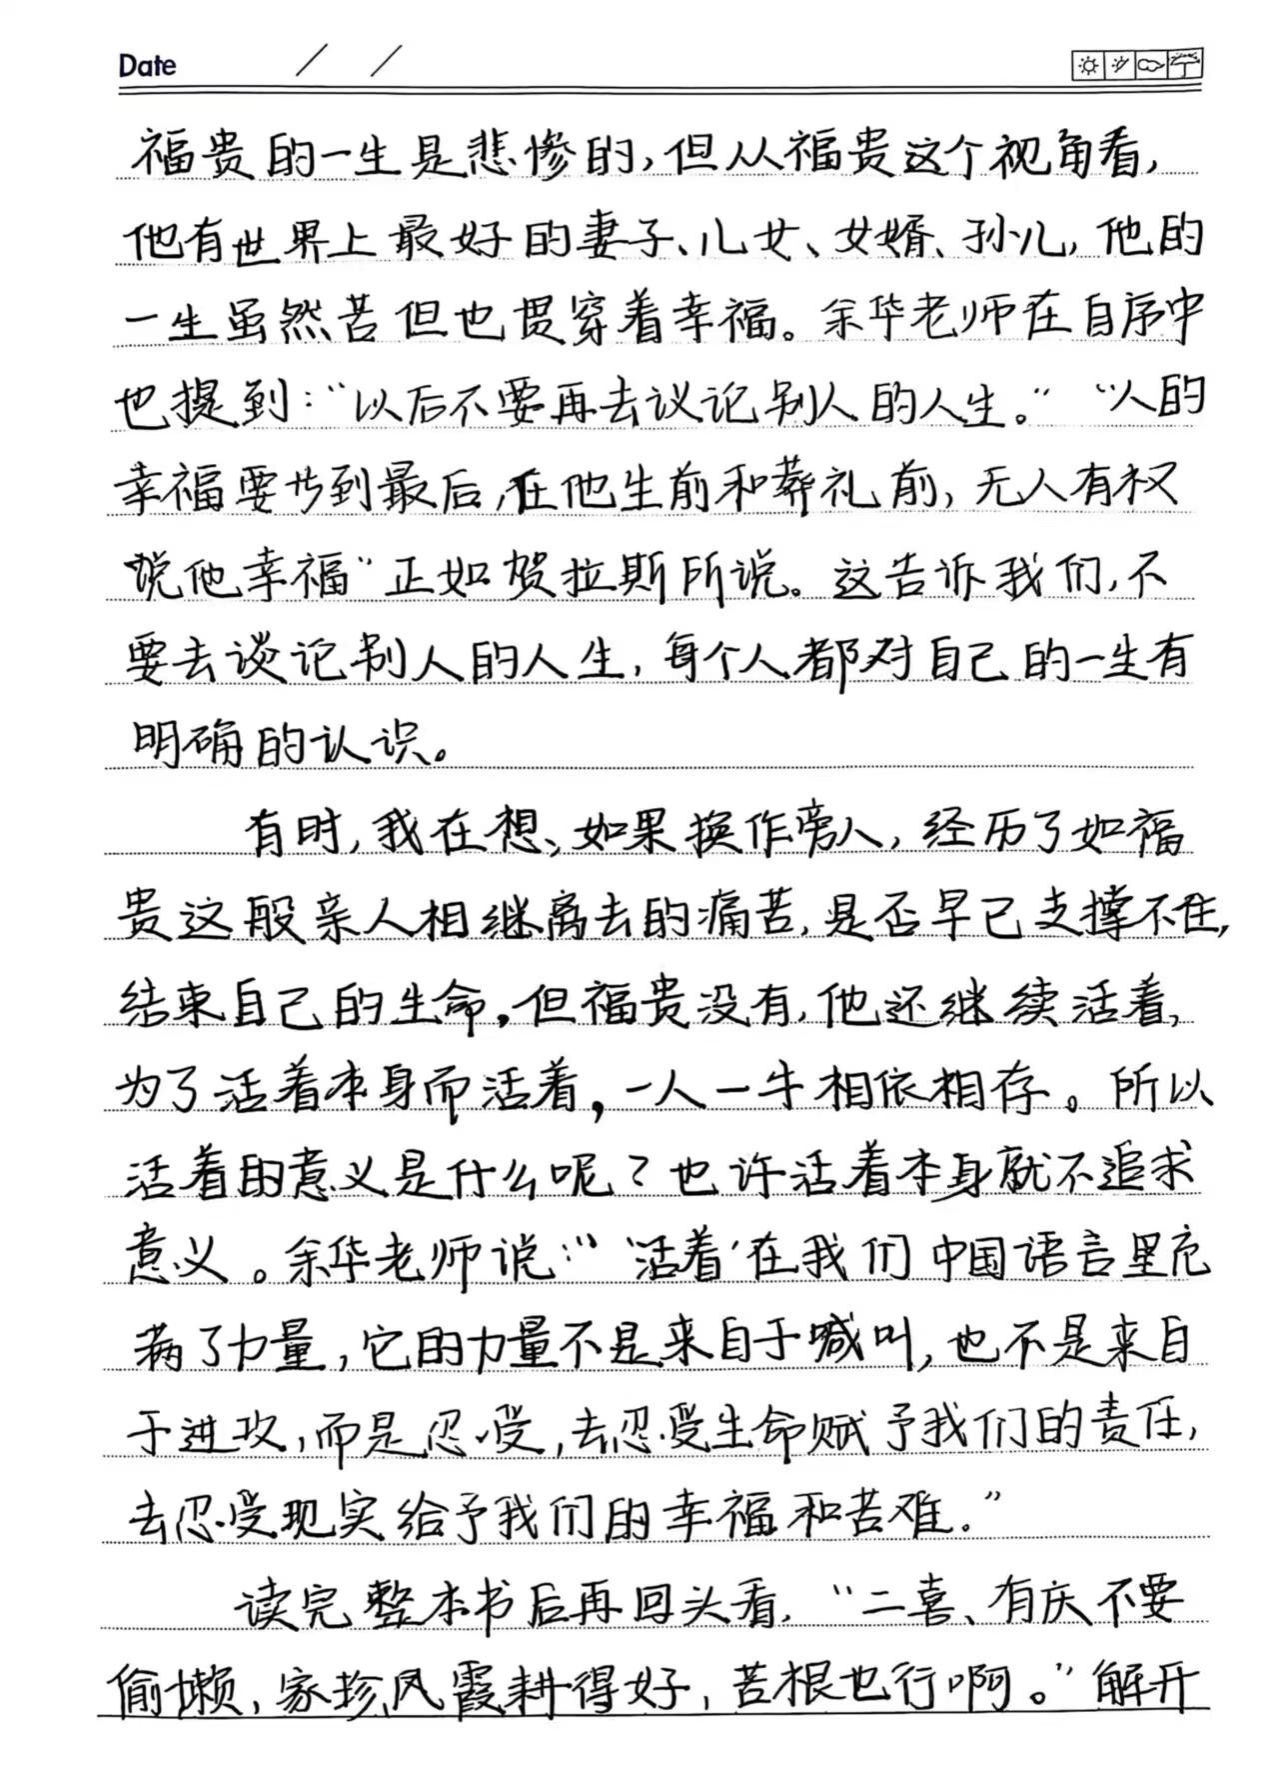 Date / /
福贵的一生是悲惨的,但从福贵这个视角看,
他有世界上最好的妻子、儿女、女婿、孙儿,他的
一生虽然苦但也贯穿着幸福。余华老师在自序中
也提到:“以后不要再去议记别人的人生。”“人的
幸福要等到最后,在他生前和葬礼前,无人有权
说他幸福”正如贺拉斯所说。这告诉我们,不
要去谈记别人的人生,每个人都对自己的一生有
明确的认识。
有时,我在想、如果换作旁人,经历了如福
贵这般亲人相继离去的痛苦,是否早已支撑不住,
结束自己的生命,但福贵没有,他还继续活着,
为了活着本身而活着,一人一牛相依相存。所以
活着的意义是什么呢?也许活着本身就不追求
意义。余华老师说:“‘活着’在我们中国语言里充
满了力量,它的力量不是来自于喊叫,也不是来自
于进攻,而是忍受,去忍受生命赋予我们的责任,
去忍受现实给予我们的幸福和苦难。”
读完整本书后再回头看,“二喜、有庆不要
偷懒,家珍凤霞耕得好,苦根也行啊。”解开